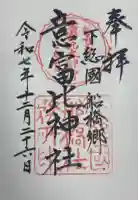 奉拝
下総國船橋郷
意富比神社
令和七年十二月二十六日